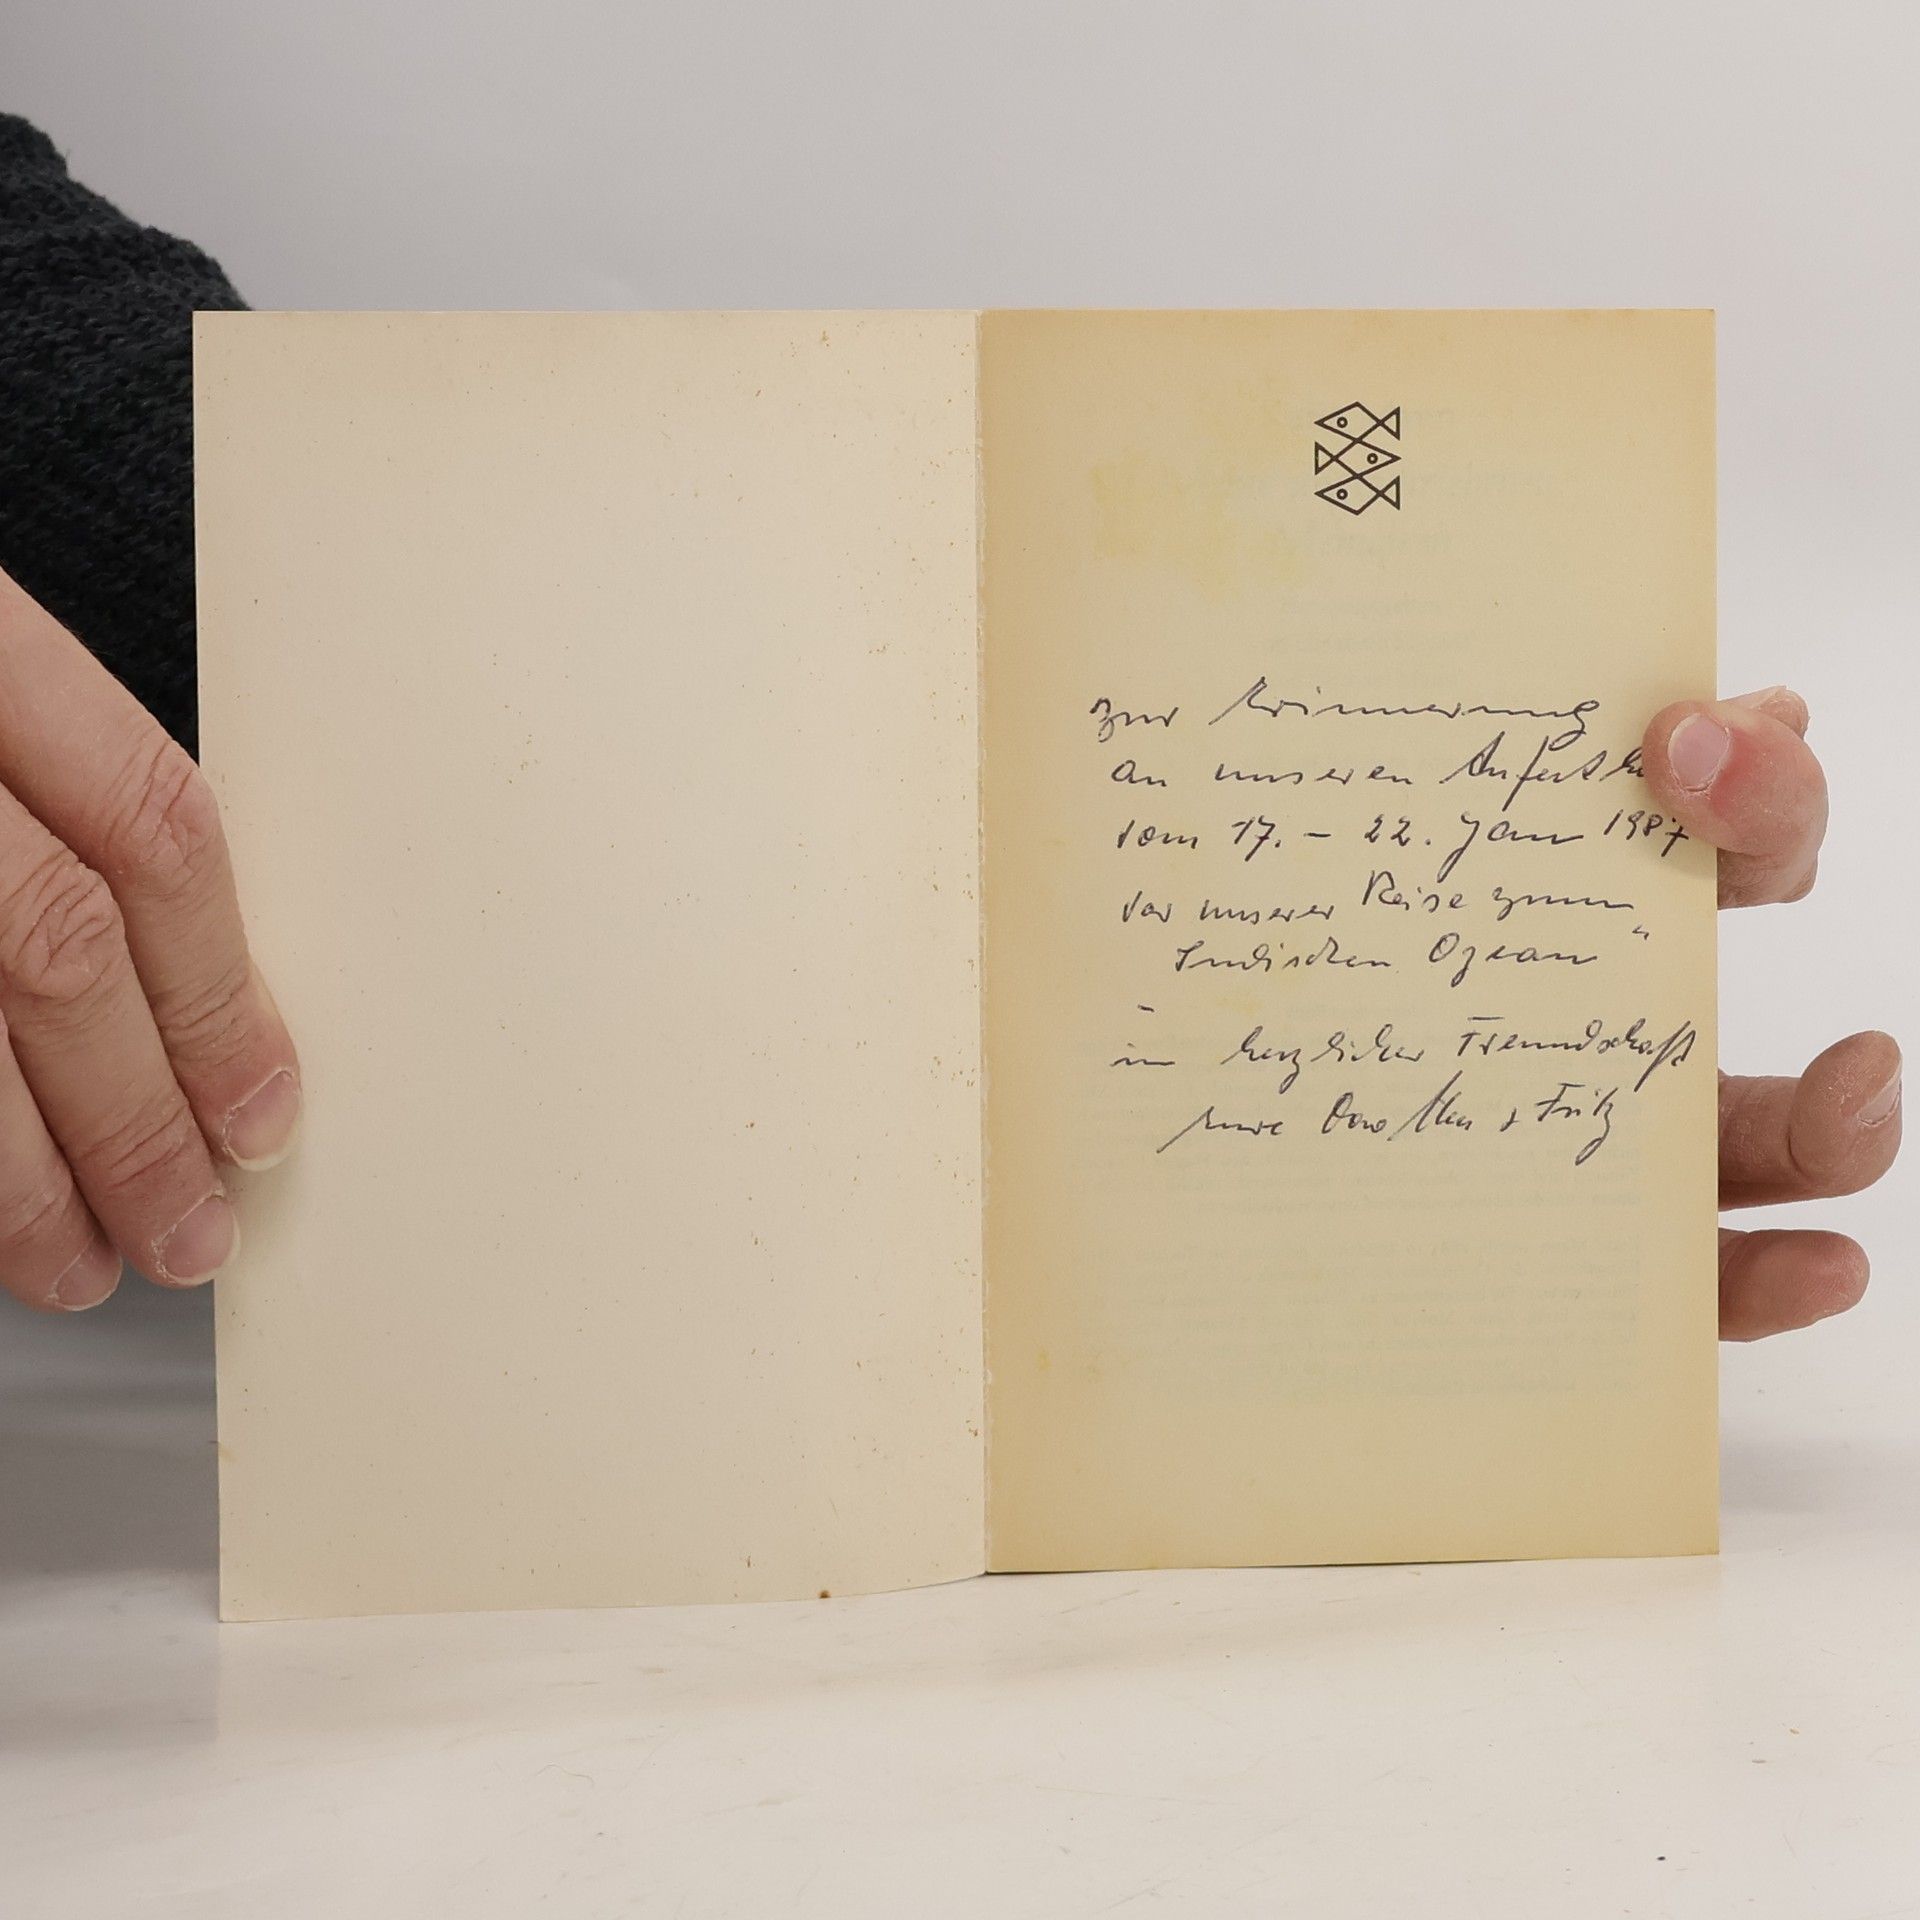 zur Erinnerung
an unseren
vom 17. – 22. Jan 1987
vor unserer Reise zum
Indischen Ozean"
in herzlicher Freundschaft
eure Dorothea + Fritz